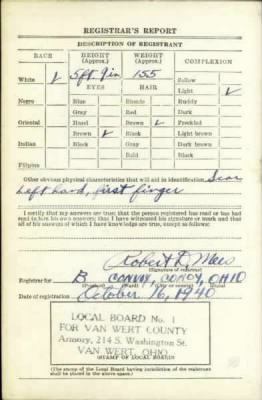 REGISTRAR'S REPORT
DESCRIPTION OF REGISTRANT
RACE HEIGHT (Approx.) WEIGHT (Approx.) COMPLEXION
White ✓ 5 ft. 9 in 155 Sallow
EYES HAIR Light ✓
Negro Blue Blonde Ruddy
Gray Red Dark
Oriental Hazel Brown ✓ Freckled
Brown ✓ Black Light brown
Indian Black Gray Dark brown
Bald Black
Filipino
Other obvious physical characteristics that will aid in identification Scar
Left hand, first finger
I certify that my answers are true; that the person registered has read or has had
read to him his own answers; that I have witnessed his signature or mark and that
all of his answers of which I have knowledge are true, except as follows:
Robert D. 
(Signature of registrar)
Registrar for B CONVOY, CONVOY, OHIO
(Precinct) (Ward) (City or county) (State)
Date of registration October 16, 1940
LOCAL BOARD No. 1
FOR VAN WERT COUNTY
Armory, 214 S. Washington St.
VAN WERT, OHIO
(STAMP OF LOCAL BOARD)
(The stamp of the Local Board having jurisdiction of the registrant
shall be placed in the above space.)